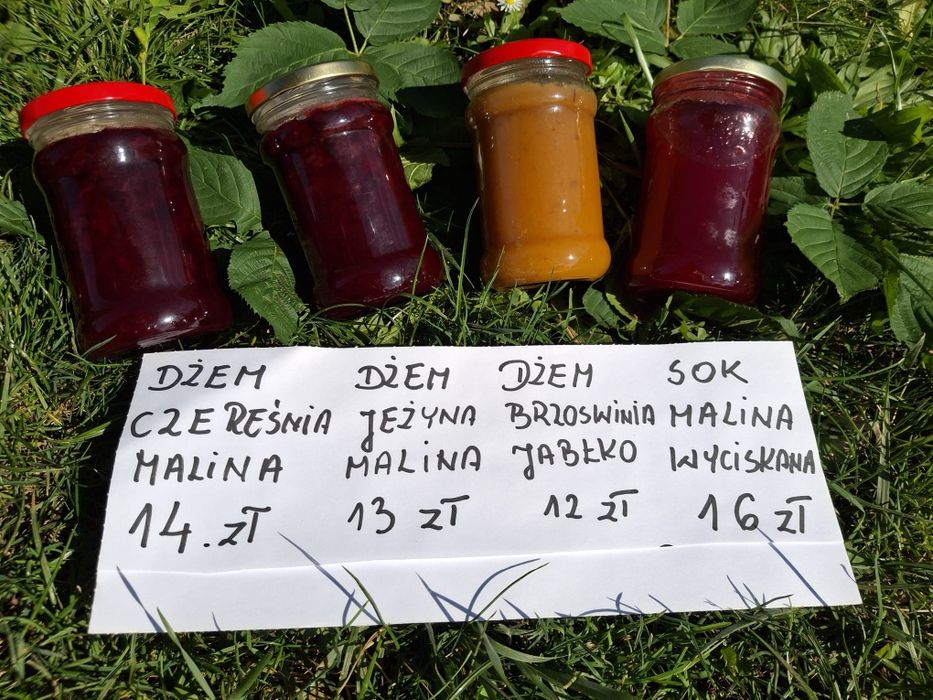 DŻEM
CZEREŚNIA
MALINA
14.zł
DŻEM
JEŻYNA
MALINA
13 zł
DŻEM
BRZOSWINIA
JABŁKO
12 zł
SOK
MALINA
WYCISKANA
16 zł